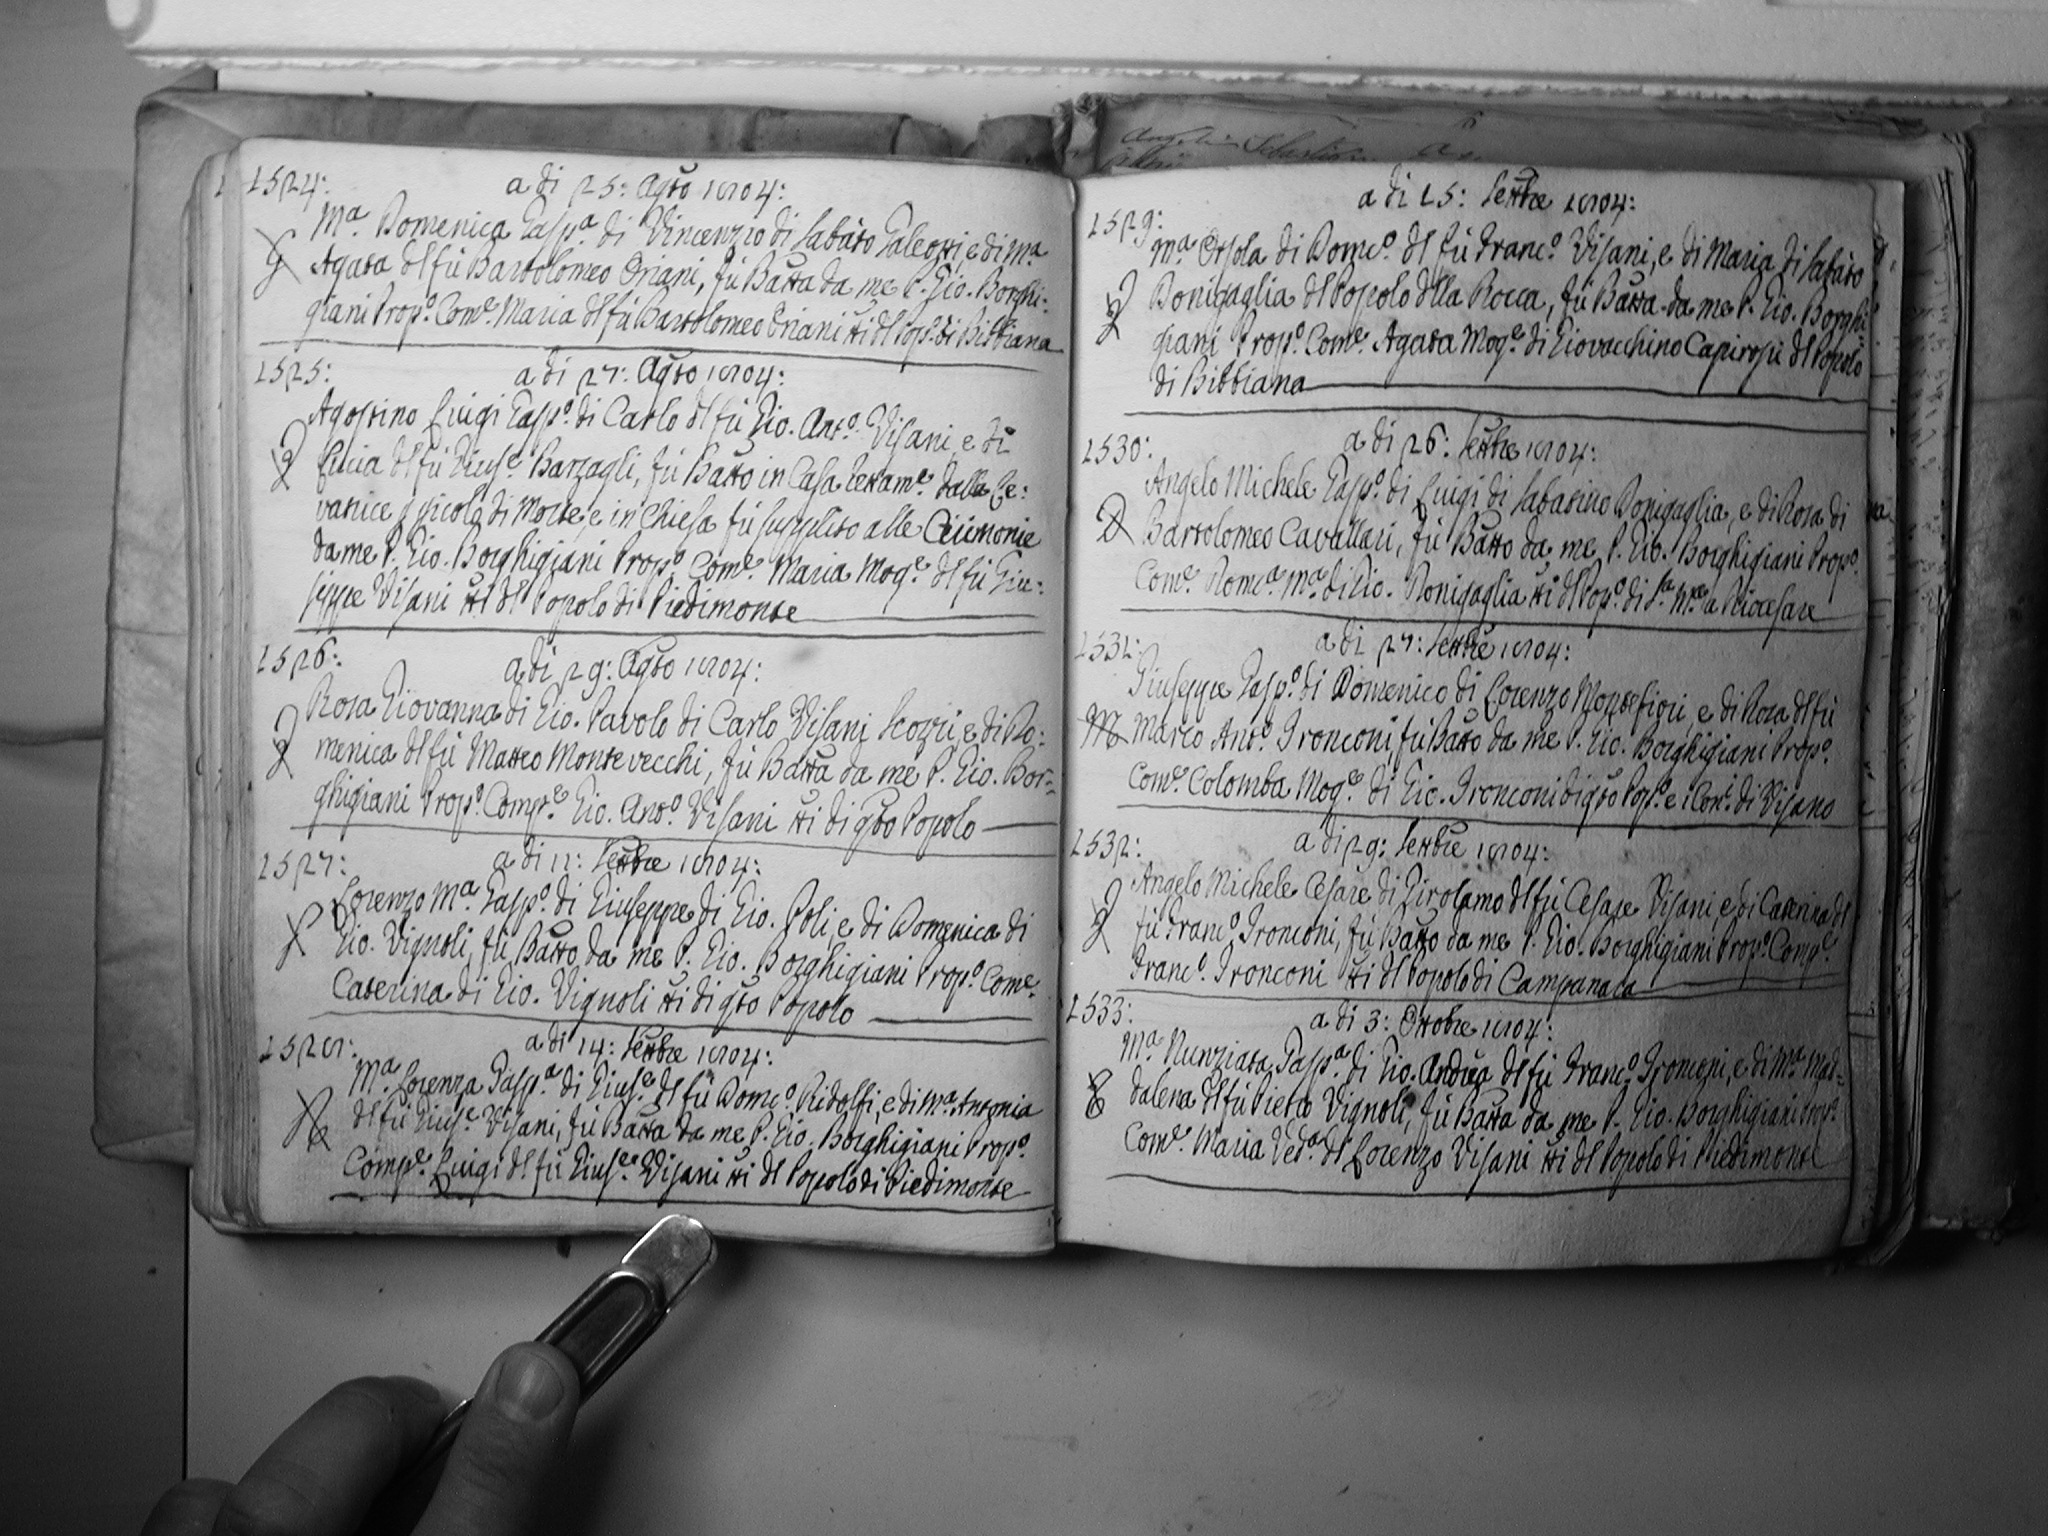 1524:
a di 25: Agto 1804:
Ma. Domenica Gaspa. di Vincenzio di Sabato Galeotti, e di Ma.
Agata del fù Bartolomeo Oriani, fù Batta da me P. Gio. Borghi-
giani Propo. Come. Maria del fù Bartolomeo Oriani tti del Popo. di Bibbiana
1525:
a di 27: Agto 1804:
Agostino Luigi Gaspo. di Carlo del fù Gio. Anto. Visani, e di
Lucia del fù Giuse. Barzagli, fù Batto in Casa tettame. dalla Le:
vatrice p picolo di Morte, e in Chiesa fù supplito alle Cirimonie
da me P. Gio. Borghigiani Propo. Come. Maria Moge. del fù Giu:
seppe Visani tti del Popolo di Piedimonte
1526:
a di 29: Agto 1804:
Rosa Giovanna di Gio. Pavolo di Carlo Visani Scozzi, e di Do:
menica del fù Matteo Montevecchi, fù Batta da me P. Gio. Bor=
ghigiani Propo. Compe. Gio. Anto. Visani tti di qto Popolo
1527:
a di 12: Settbre 1804:
Lorenzo Ma. Gaspo. di Giuseppe di Gio. Poli, e di Domenica di
Gio. Vignoli, fù Batto da me P. Gio. Borghigiani Propo. Come.
Caterina di Gio. Vignoli tti di qto Popolo
1528:
a di 14: Settbre 1804:
Ma. Lorenza Gaspa. di Giuse. del fù Domco. Ridolfi, e di Ma. Antonia
del fù Giuse. Visani, fù Batta da me P. Gio. Borghigiani Propo.
Compe. Luigi del fù Giuse. Visani tti del Popolo di Piedimonte
a di 25: Settbre 1804:
1529:
Ma. Orsola di Domco. del fù Franco. Visani, e di Maria di Sabato
Donigaglia del Popolo della Rocca, fù Batta da me P. Gio. Borghi=
giani Propo. Come. Agata Moge. di Giovacchino Capirossi del Popolo
di Bibbiana
1530:
a di 26: Settbre 1804:
Angelo Michele Gaspo. di Luigi di Sabatino Donigaglia, e di Rosa di
Bartolomeo Cavallari, fù Batto da me P. Gio. Borghigiani Propo.
Come. Domca. Ma. di Gio. Donigaglia tti del Popo. di Sa. Me. a Riocesare
1531:
a di 27: Settbre 1804:
Giuseppe Gaspo. di Domenico di Lorenzo Montefiori, e di Rosa del fù
Marco Anto. Tronconi, fù Batto da me P. Gio. Borghigiani Propo.
Come. Colomba Moge. di Gio. Tronconi di qto Popo. e Cont. di Visano
1532:
a di 29: Settbre 1804:
Angelo Michele Cesare di Girolamo del fù Cesare Visani, e di Caterina del
fù Franco. Tronconi, fù Batto da me P. Gio. Borghigiani Propo. Compe.
Franco. Tronconi tti del Popolo di Campanara
1533:
a di 3: Ottobre 1804:
Ma. Nunziata Gaspa. di Gio. Andrea del fù Franco. Tronconi, e di Ma. Mad=
dalena del fù Pietro Vignoli, fù Batta da me P. Gio. Borghigiani Propo.
Come. Maria Veda. di Lorenzo Visani tti del Popolo di Piedimonte